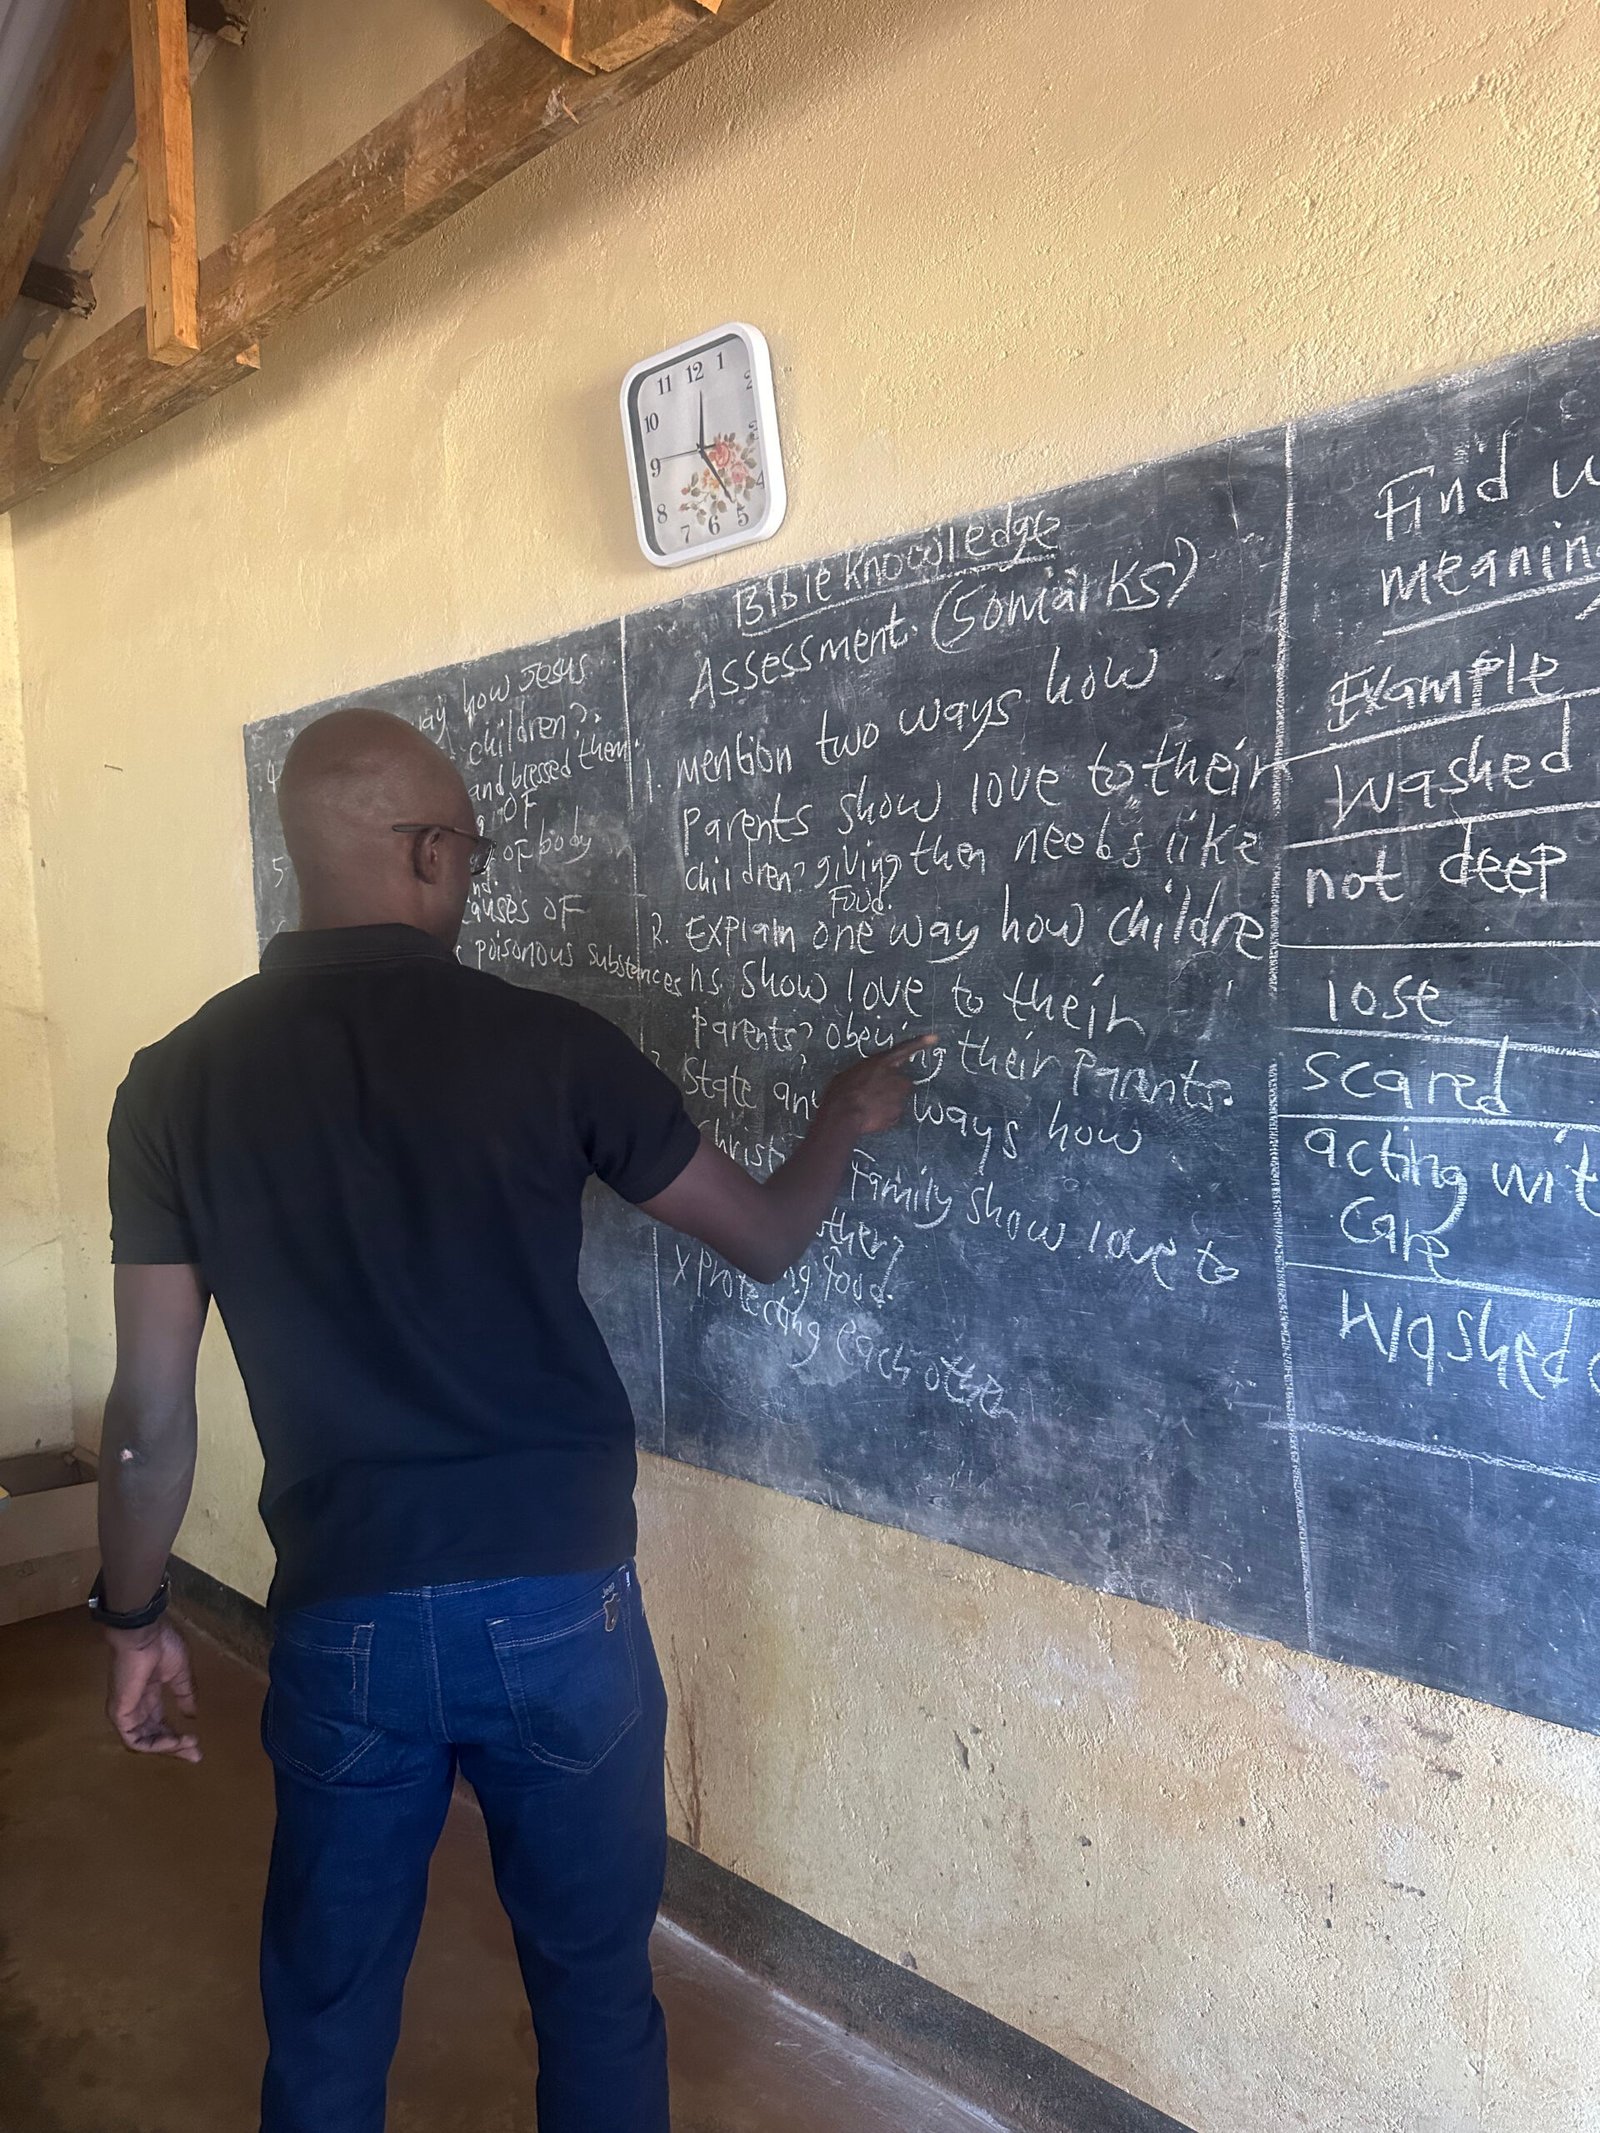 12
1
2
3
4
5
6
7
8
9
10
11
how Jesus
children?
and blessed them
4
OF
5
of body
causes OF
poisonous substances
Bible Knowledge
Assessment. (50marks)
1. mention two ways how
Parents show love to their
children? giving them needs like
Food.
2. Explain one way how childre
ns show love to their
parents? obeying their Parents.
State any ways how
Christ Family show love to
other?
X food.
protecting each other
Find
meaning
Example
Washed
not deep
lose
scared
acting wit
care
Washed
Jeep